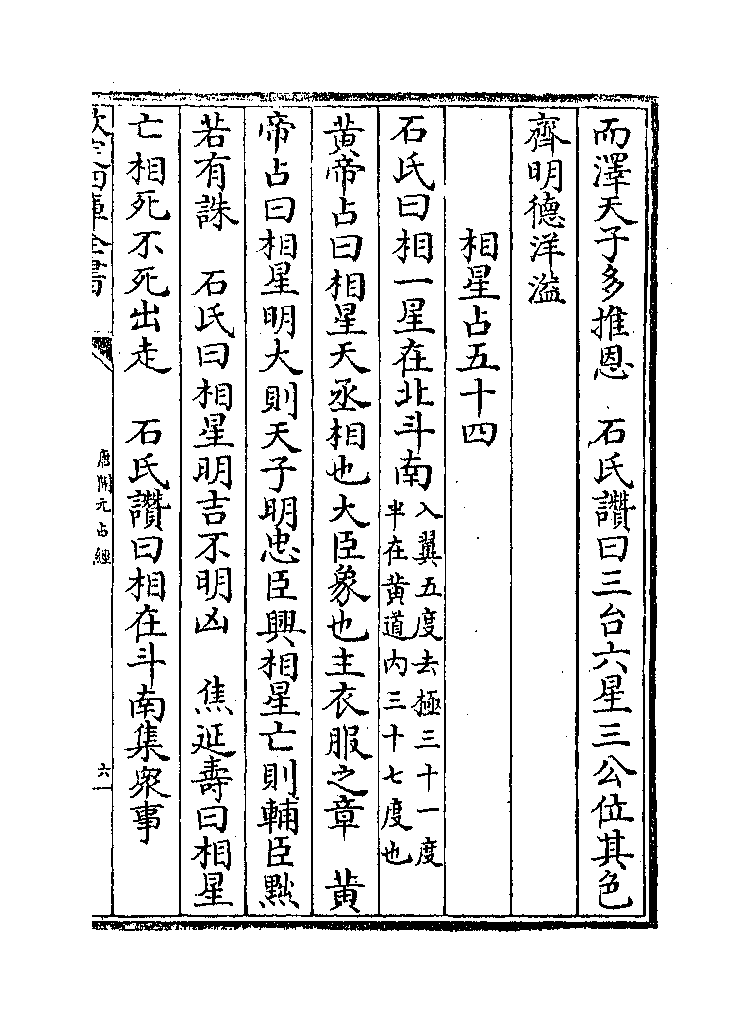 而澤天子多推恩　石氏讚曰三台六星三公位其色
齊明德洋溢
相星占五十四
石氏曰相一星在北斗南入翼五度去極三十一度
半在黄道内三十七度也
黄帝占曰相星天丞相也大臣象也主衣服之章　黄
帝占曰相星明大則天子明忠臣興相星亡則輔臣黜
若有誅　石氏曰相星明吉不明凶　焦延壽曰相星
亡相死不死出走　石氏讚曰相在斗南集衆事
欽定四庫全書
唐開元占經
六一